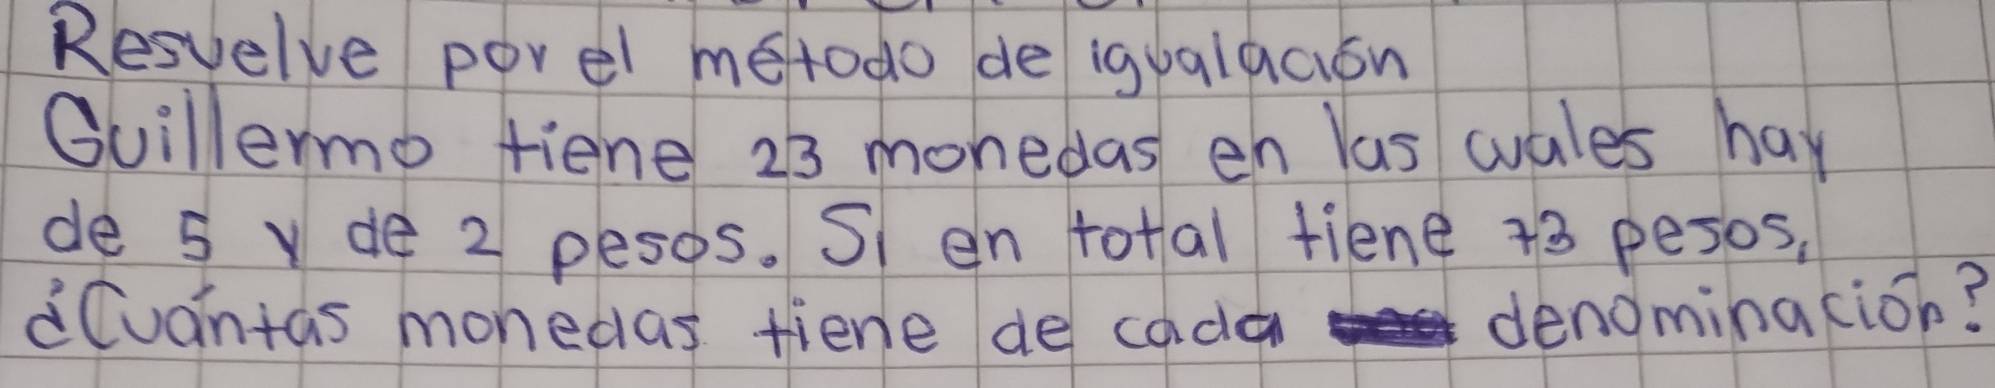 Resuelve por el método de igualación
Guillermo tiene 23 monedas en las cuales hay
de 5 y de 2 pesos. Si en total tiene 73 pesos,
¿Cuántas monedas tiene de cada denominación?